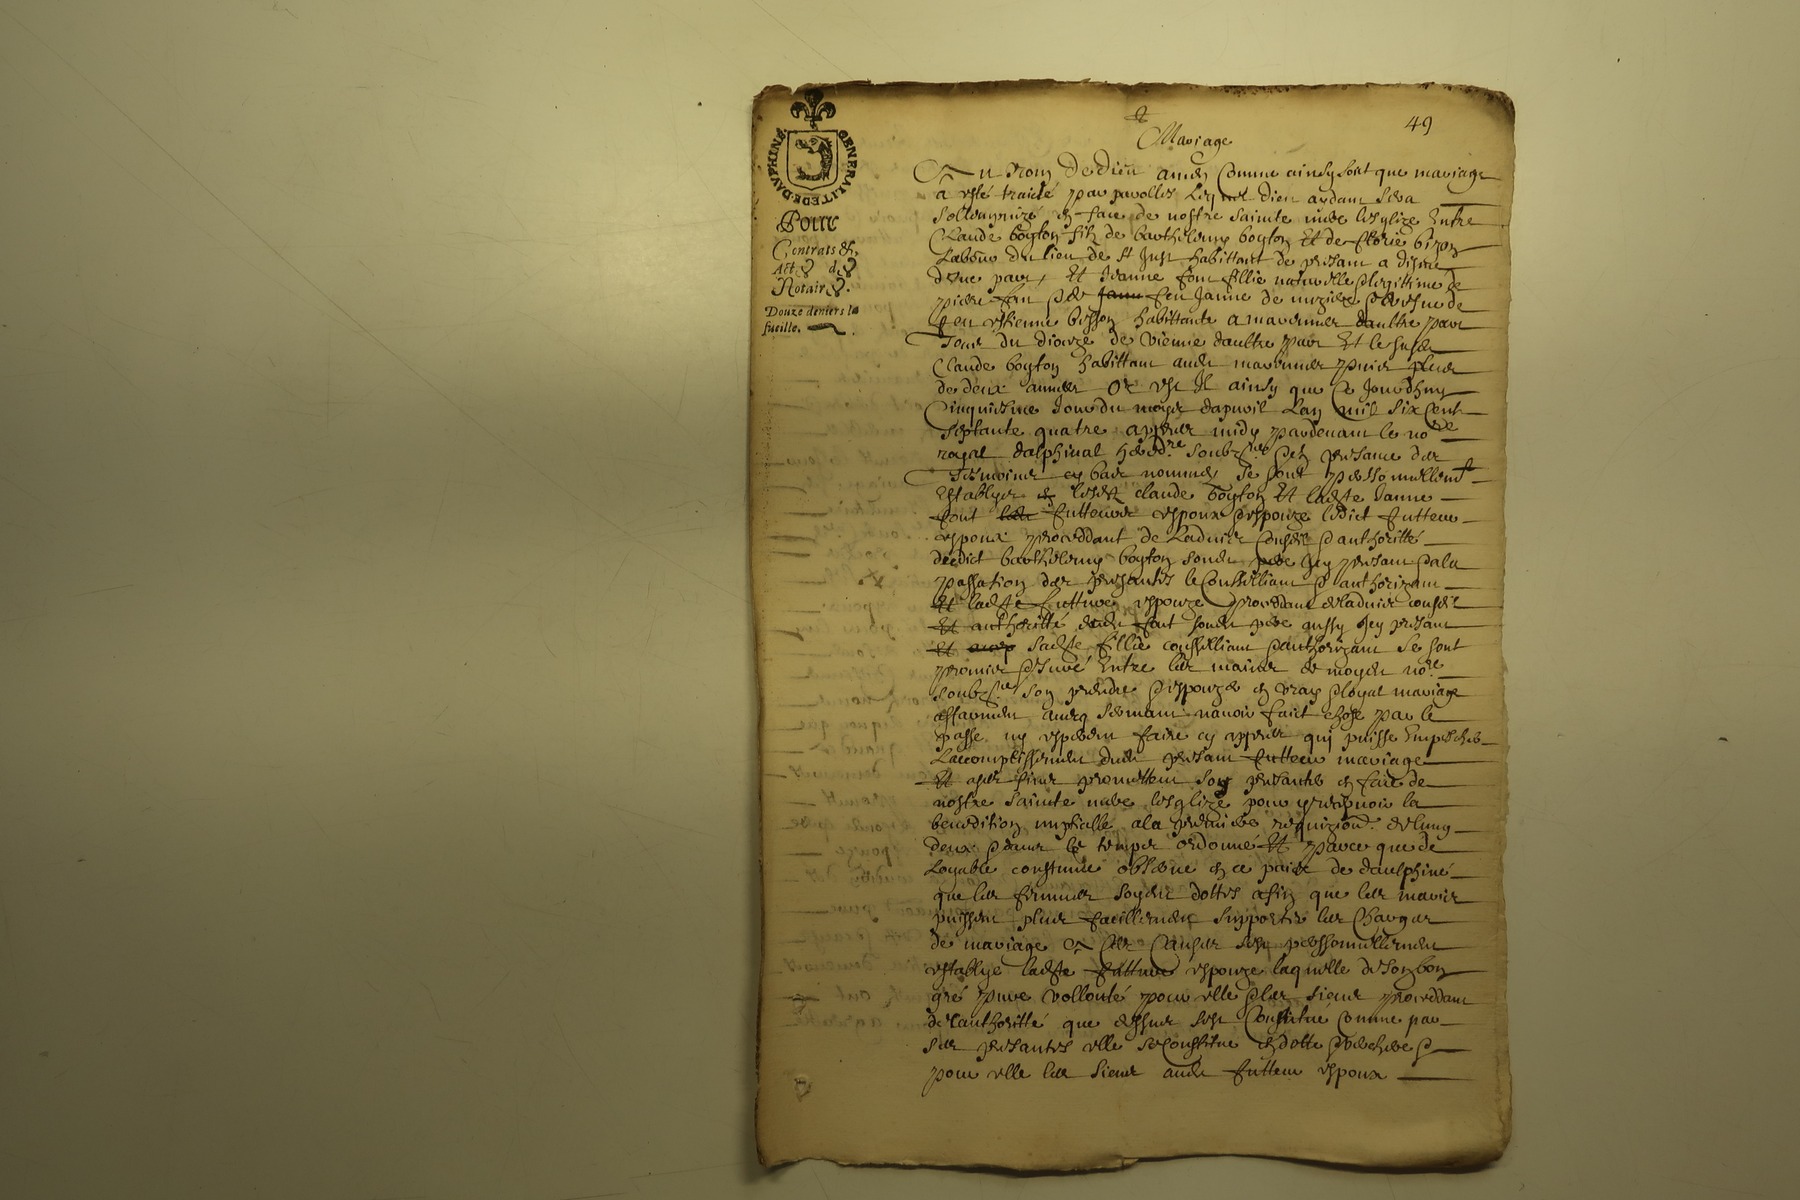 49
Mariage
GENERALITE DE DAVPHINE
Pour
Contrats &
Act d
Notair
Douze deniers la
fueille.
Au Nom de Dieu amen Comme ainsy soit que mariage
a esté traicté par parolles Dieu aydant sera
Sollempnizé en face de nostre sainte mere lesglize Entre
Claude boyton filz de barthelemy boyton Et de
du lieu de St Just habittant de present a
dune part, Et Jeanne font fillie naturelle & legittime de
feu Janne de
feu estienne habittante a daultre part
Tous du dioceze de Vienne daultre part Et le susdt
Claude boyton habittant audt puis plus
de deux annees Or est Il ainsy que Ce Jourdhuy
Cinquiesme Jour du moys dapvril Lan mil six cent
septante quatre appres midy pardevant le nore
royal dalphinal heredre soubzne & en presance des
Tesmoins cy bas nommes Se sont personnellemt
establys lesdt claude boyton Et ladte Janne
font futteurs espoux & espouze ledict futteur
espoux proceddant de Ladvis Conseil & authoritté
dudict barthelemy boyton sondt pere Icy presant & a la
passation des presantes le Conseilliant & authorizant
Et ladte futture espouze proceddant de ladvis conseil
Et authoritté dudt font sondt pere aussy Icy presant
Et sadte fillie conseilliant & authorizant Se sont
promis & Juré Entre les mains de moydt nore
soubzne Son prendre & espouzer en vray & loyal mariage
affirment navoir faict chose par le
passe ny esperer faire cy appres qui puisse Empescher
Laccomplissement dudt presant futteur mariage
Et a ses fins promettent soy presanter en face de
nostre sainte mere lesglize pour y recepvoir la
benedition nuptialle a la premiere requizion de lung
deux & dans le temps ordonné Et parce que de
Loyable coustume observe en ce païs de daulphiné
que les femmes soyent dottes afin que les maris
puissent plus facillement supporter les Charges
de mariage A Ces Causes sest personnellement
establye ladte futture espouze laquelle de son bon
gré pure vollonté pour elle & les siens proceddant
de lauthoritté que dessus sest Constitué Comme par
ses presantes elle se Constitue en dotte &
pour elle les siens audt futteur espoux